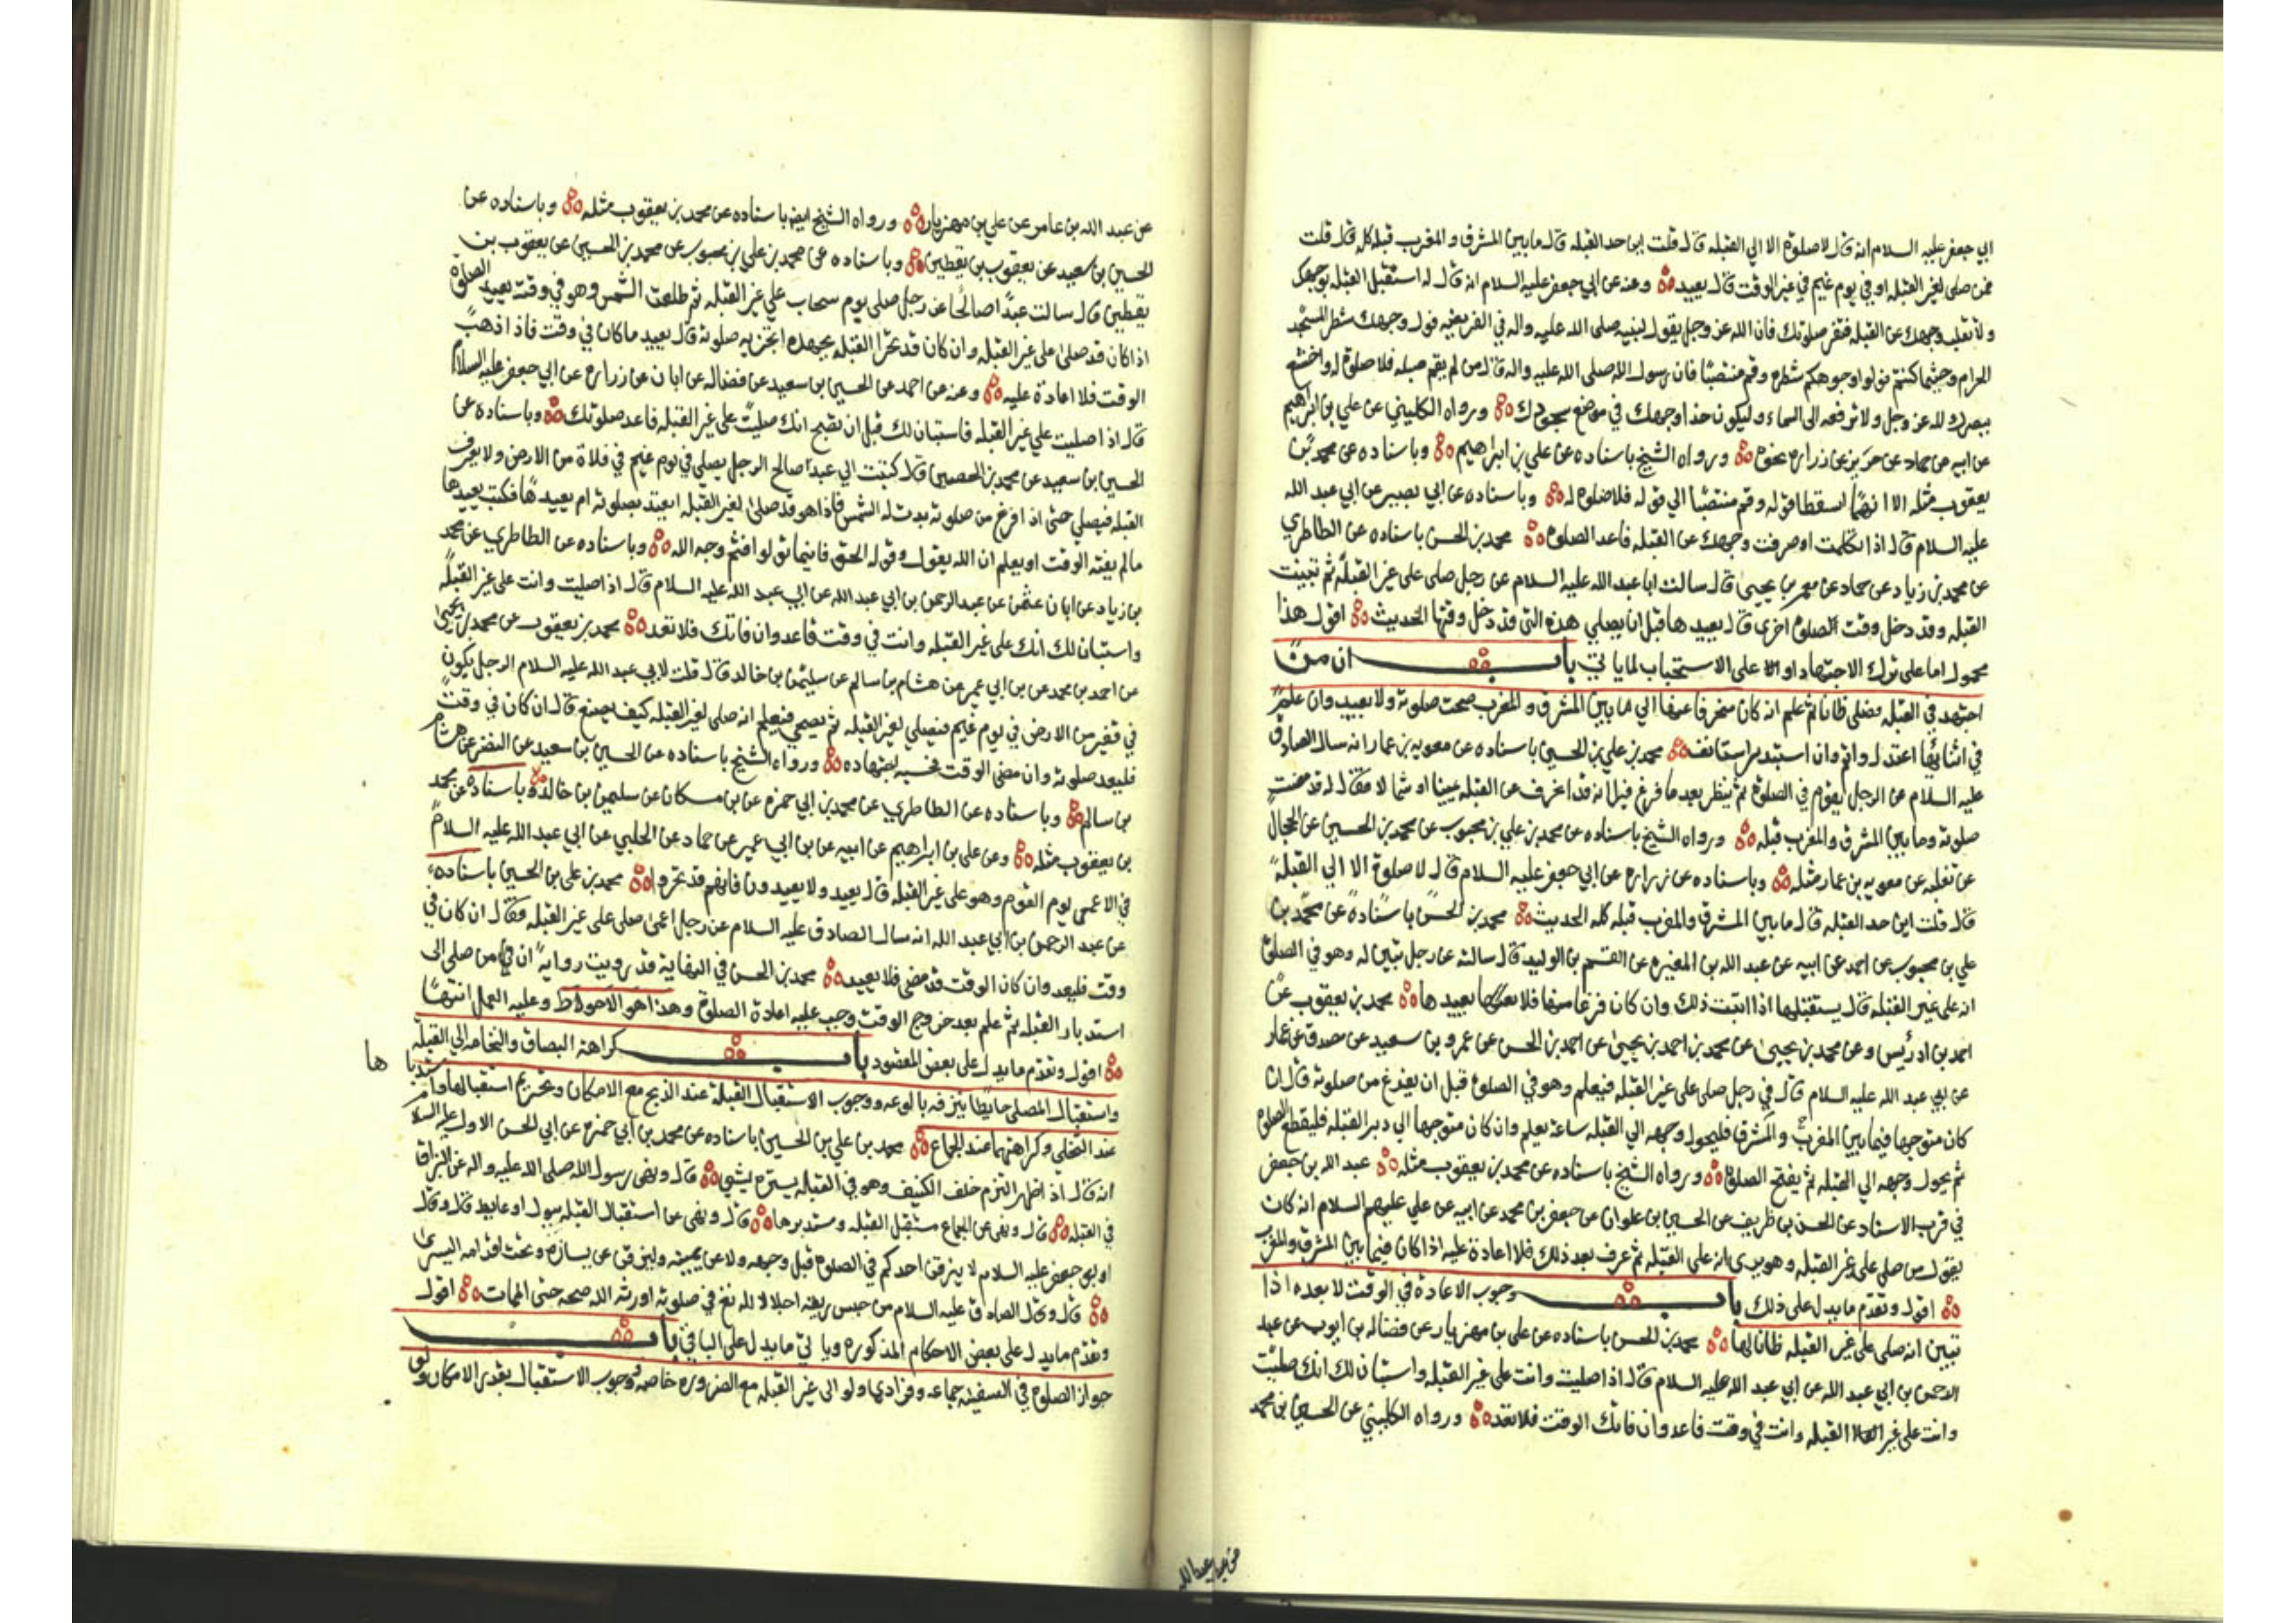 ابي جعفر عليه السلام انه قال لا صلوة الا الي القبله قال قلت اين حد القبله قال ما بين المشرق و المغرب قبله كله قال قلت
فمن صلى لغير القبله او في يوم غيم في غير الوقت قال يعيد وعنه عن ابي جعفر عليه السلام انه قال له استقبل القبله بوجهك
ولا تقلب وجهك عن القبله فتفسد صلوتك فان الله عز وجل يقول لنبيه صلى الله عليه واله في الفريضه فول وجهك شطر المسجد
الحرام وحيثما كنتم فولوا وجوهكم شطره وقم منتصبا فان رسول الله صلى الله عليه واله قال من لم يقم صلبه فلا صلوة له واخشع
ببصرك لله عز وجل ولا ترفعه الى السماء وليكون حذا وجهك في موضع سجودك ورواه الكليني عن علي بن ابراهيم
عن ابيه عن حماد عن حريز عن زراره نحوه ورواه الشيخ باسناده عن علي بن ابراهيم وباسناده عن محمد بن
يعقوب مثله الا انهما اسقطا قوله وقم منتصبا الي قوله فلا صلوة له وباسناده عن ابي بصير عن ابي عبد الله
عليه السلام قال اذا تكلمت او صرفت وجهك عن القبله فاعد الصلوة محمد بن الحسن باسناده عن الطاطري
عن محمد بن زياد عن حماد عن معمر بن يحيى قال سالت ابا عبد الله عليه السلام عن رجل صلى على غير القبله ثم تبينت
القبله وقد دخل وقت الصلوة اخرى قال يعيدها قبل ان يصلي هذه التي قد دخل وقتها الحديث اقول هذا
محمول اما على ترك الاجتهاد او على الاستحباب لما ياتي باب ان من
اجتهد في القبله فصلى ظانا ثم علم انه كان منحرفا عنها الي ما بين المشرق و المغرب صحت صلوته ولا يعيد وان علم
في اثنائها اعتدل واتم وان استدبر استانف محمد بن علي بن الحسين باسناده عن معويه بن عمار انه سال الصادق
عليه السلام عن الرجل يقوم في الصلوة ثم ينظر بعد ما فرغ فيرا انه قد انحرف عن القبله يمينا او شمالا فقال له قد مضت
صلوته وما بين المشرق والمغرب قبله ورواه الشيخ باسناده عن محمد بن علي بن محبوب عن محمد بن الحسين عن الحجال
عن ثعلبه عن معويه بن عمار مثله وباسناده عن زراره عن ابي جعفر عليه السلام قال لا صلوة الا الي القبله
قال قلت اين حد القبله قال ما بين المشرق والمغرب قبله كله الحديث محمد بن الحسن باسناده عن محمد بن
علي بن محبوب عن احمد عن ابيه عن عبد الله بن المغيره عن القسم بن الوليد قال سالته عن رجل تبين له وهو في الصلوة
انه على غير القبله قال يستقبلها اذا اثبت ذلك وان كان فرغ منها فلا يعيدها محمد بن يعقوب عن
احمد بن ادريس وعن محمد بن يحيى عن محمد بن احمد بن يحيى عن احمد بن الحسن عن عمرو بن سعيد عن مصدق عن عمار
عن ابي عبد الله عليه السلام قال في رجل صلى على غير القبله فيعلم وهو في الصلوة قبل ان يفرغ من صلوته قال ان
كان متوجها فيما بين المغرب والمشرق فليحول وجهه الي القبله ساعة يعلم وان كان متوجها الي دبر القبله فليقطع الصلوة
ثم يحول وجهه الي القبله ثم يفتح الصلوة ورواه الشيخ باسناده عن محمد بن يعقوب مثله عبد الله بن جعفر
في قرب الاسناد عن الحسن بن ظريف عن الحسين بن علوان عن جعفر بن محمد عن ابيه عن علي عليهم السلام انه كان
يقول من صلى على غير القبله وهو يرى انه على القبله ثم عرف بعد ذلك فلا اعادة عليه اذا كان فيما بين المشرق والمغرب
اقول وتقدم ما يدل على ذلك باب وجوب الاعادة في الوقت لا بعده اذا
تبين انه صلى على غير القبله ظانا لها محمد بن الحسن باسناده عن علي بن مهزيار عن فضاله بن ايوب عن عبد
الرحمن بن ابي عبد الله عن ابي عبد الله عليه السلام قال اذا صليت وانت على غير القبله واستبان لك انك صليت
وانت على غير القبله وانت في وقت فاعد وان فاتك الوقت فلا تعد ورواه الكليني عن الحسين بن محمد
عن عبد الله
عن عبد الله بن عامر عن علي بن مهزيار ورواه الشيخ ايضا باسناده عن محمد بن يعقوب مثله وباسناده عن
الحسين بن سعيد عن يعقوب بن يقطين وباسناده عن محمد بن علي بن محبوب عن محمد بن الحسين عن يعقوب بن
يقطين قال سالت عبدا صالحا عن رجل صلى يوم سحاب علي غير القبله ثم طلعت الشمس وهو في وقت يعيد الصلوة
اذا كان قد صلى على غير القبله وان كان قد تحرا القبله بجهده اتجزيه صلوته قال يعيد ما كان في وقت فاذا ذهب
الوقت فلا اعادة عليه وعنه عن احمد عن الحسين بن سعيد عن فضاله عن ابان عن زراره عن ابي جعفر عليه السلام
قال اذا صليت علي غير القبله فاستبان لك قبل ان تصبح انك صليت على غير القبله فاعد صلوتك وباسناده عن
الحسين بن سعيد عن محمد بن الحصين قال كتبت الي عبد صالح الرجل يصلي في يوم غيم في فلاة من الارض ولا يعرف
القبله فيصلي حتى اذا فرغ من صلوته بدت له الشمس فاذا هو قد صلى لغير القبله ايعتد بصلوته ام يعيدها فكتب يعيدها
مالم يفته الوقت اويعلم ان الله يقول وقوله الحق فاينما تولوا فثم وجه الله وباسناده عن الطاطري عن محمد
بن زياد عن ابان عثمن عن عبد الرحمن بن ابي عبد الله عن ابي عبد الله عليه السلام قال اذا صليت وانت على غير القبله
واستبان لك انك على غير القبله وانت في وقت فاعد وان فاتك فلا تعد محمد بن يعقوب عن محمد بن يحيى
عن احمد بن محمد عن بن ابي عمير عن هشام بن سالم عن سليمن بن خالد قال قلت لابي عبد الله عليه السلام الرجل يكون
في قفر من الارض في يوم غيم فيصلي لغير القبله ثم يصحي فيعلم انه صلى لغير القبله كيف يصنع قال ان كان في وقت
فليعد صلوته وان مضى الوقت فحسبه اجتهاده ورواه الشيخ باسناده عن الحسين بن سعيد عن النضر عن هشام
بن سالم وباسناده عن الطاطري عن محمد بن ابي حمزه عن بن مسكان عن سليمن بن خالد وباسناده عن محمد
بن يعقوب مثله وعن علي بن ابراهيم عن ابيه عن بن ابي عمير عن حماد عن الحلبي عن ابي عبد الله عليه السلام
في الاعمى يوم القوم وهو على غير القبله قال يعيد ولا يعيدون فانهم قد تحروا محمد بن علي بن الحسين باسناده
عن عبد الرحمن بن ابي عبد الله انه سال الصادق عليه السلام عن رجل اعمى صلى على غير القبله فقال ان كان في
وقت فليعد وان كان الوقت قد مضى فلا يعيد محمد بن الحسن في النهاية قد رويت رواية ان من صلى الى
استدبار القبله ثم علم بعد خروج الوقت وجب عليه اعادة الصلوة وهذا هو الاحوط وعليه العمل انتهى
اقول وتقدم ما يدل على بعض المقصود باب كراهة البصاق والنخامه الي القبله
واستقبال المصلي حايطا ينز فيه بالوعه ووجوب الاستقبال القبلة عند الذبح مع الامكان وتحريم استقبالها واستدبارها
عند التخلى وكراهتهما عند الجماع محمد بن علي بن الحسين باسناده عن محمد بن ابي حمزه عن ابي الحسن الاول عليه السلام
انه قال اذا ظهر النز من خلف الكنيف وهو في القبلة يستره بشيى قال ونهى رسول الله صلى الله عليه واله عن البزاق
في القبله قال ونهى عن الجماع مستقبل القبله ومستدبرها قال ونهى عن استقبال القبله ببول او غايط قال وقال
ابو جعفر عليه السلام لا يبزقن احدكم في الصلوة قبل وجهه ولا عن يمينه وليبزق عن يساره وتحت قدمه اليسرى
قال وقال الصادق عليه السلام من حبس ريقه اجلالا لله تع في صلوته اورثه الله صحه حتى الممات اقول
وتقدم ما يدل على بعض الاحكام المذكوره وياتي ما يدل على الباقي باب
جواز الصلوة في السفينه جماعه وفرادى ولو الى غير القبله مع الضروره خاصه ووجوب الاستقبال بقدر الامكان ولو